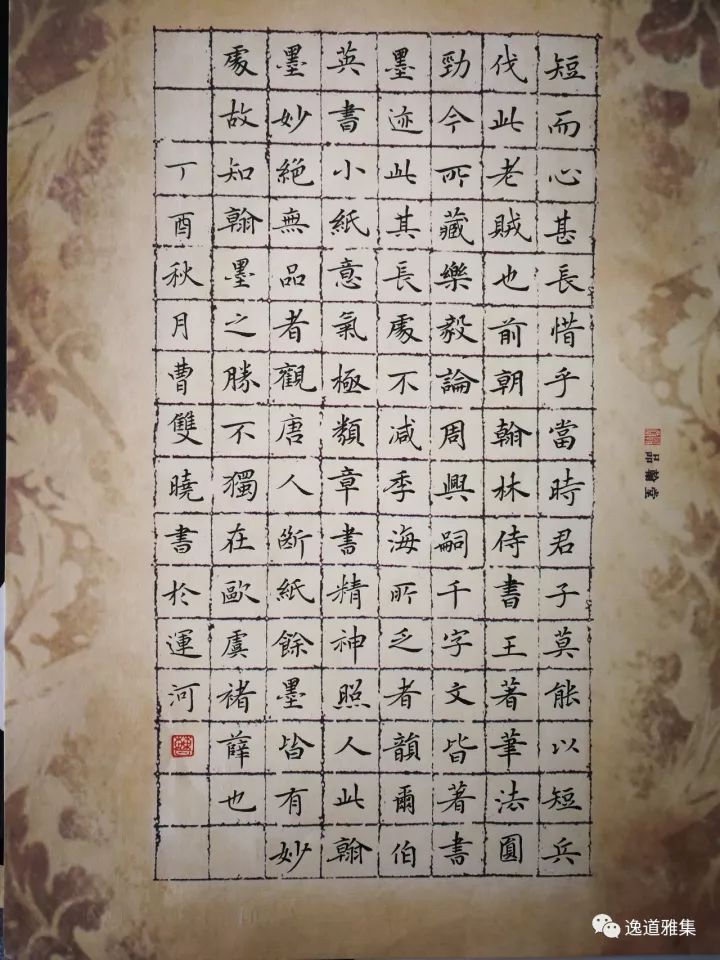 短而心甚長惜乎當時君子莫能以短兵
伐此老賊也前朝翰林侍書王著筆法圓
勁今所藏樂毅論周興嗣千字文皆著書
墨迹此其長處不減季海所乏者韻爾伯
英書小紙意氣極類章書精神照人此翰
墨妙絕無品者觀唐人斷紙餘墨皆有妙
處故知翰墨之勝不獨在歐虞褚薛也
丁酉秋月曹雙曉書於運河
品翰堂
逸道雅集